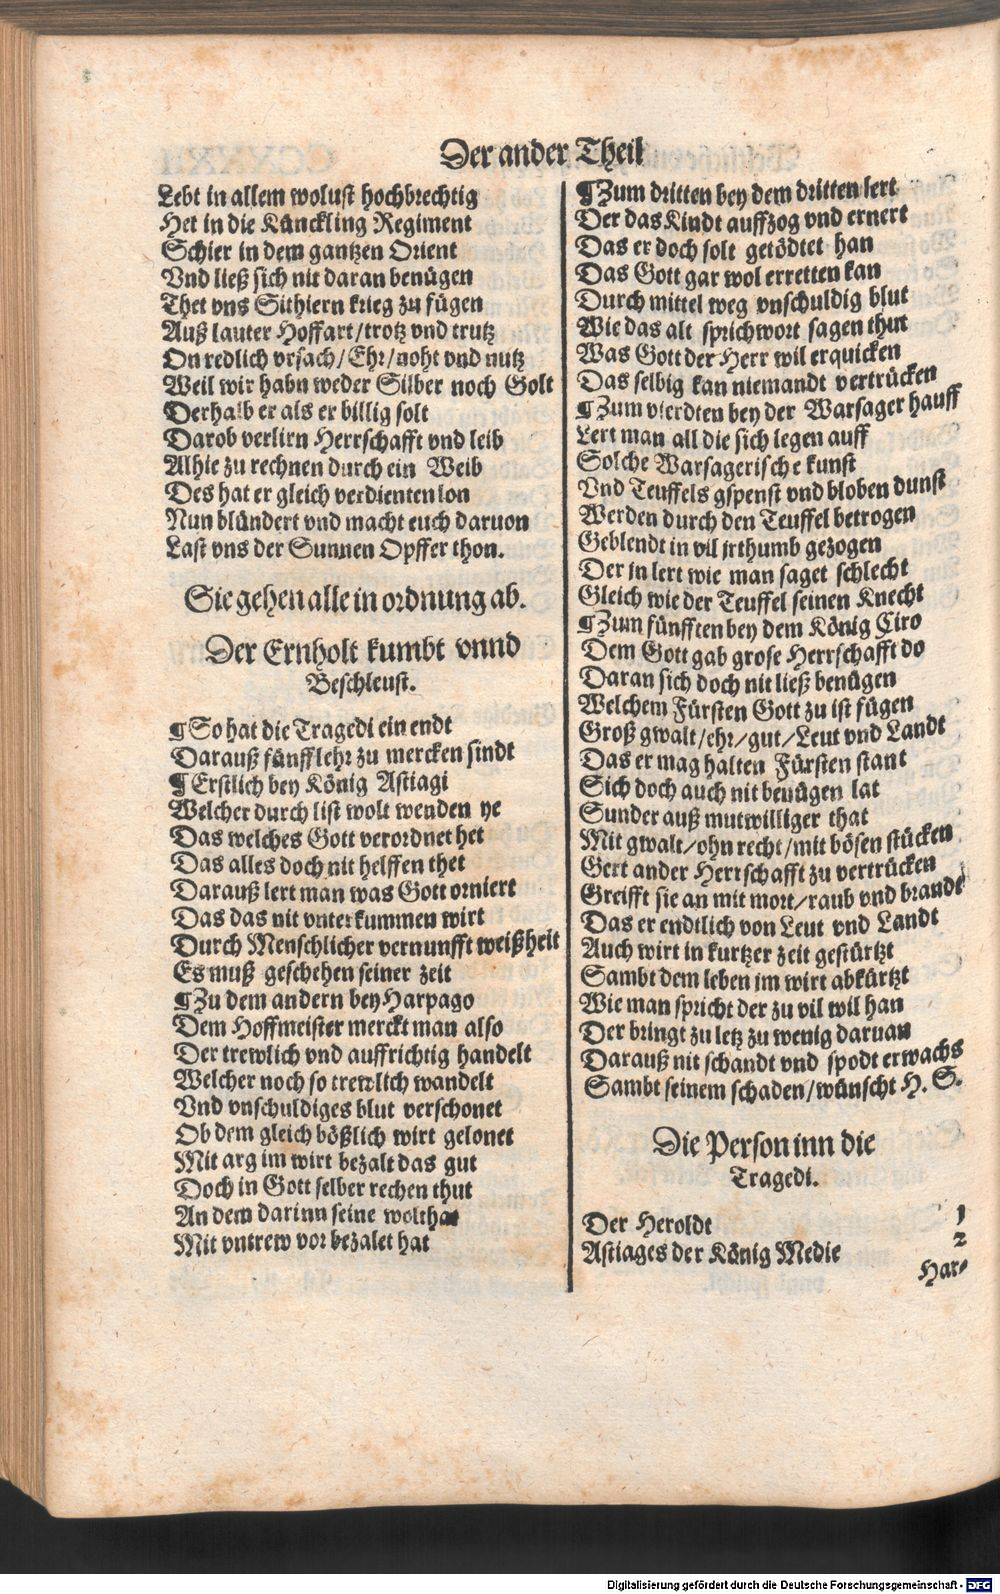 Der ander Theil
Lebt in allem wolust hochbrechtig
Het in die Künckling Regiment
Schier in dem gantzen Orient
Vnd ließ sich nit daran benügen
Thet vns Sithiern krieg zu fügen
Auß lauter Hoffart/trotz vnd trutz
On redlich vrsach/Ehr/noht vnd nutz
Weil wir habn weder Silber noch Golt
Derhalb er als er billig solt
Darob verlirn Herrschafft vnd leib
Alhie zu rechnen durch ein Weib
Des hat er gleich verdienten lon
Nun blündert vnd macht euch daruon
Last vns der Sunnen Opffer thon.
Sie gehen alle in ordnung ab.
Der Ernholt kumbt vnnd
Beschleust.
¶ So hat die Tragedi ein endt
Darauß fünff lehr zu mercken sindt
¶ Erstlich bey König Astiagi
Welcher durch list wolt wenden ye
Das welches Gott verordnet het
Das alles doch nit helffen thet
Darauß lert man was Gott orniert
Das das nit vnterkummen wirt
Durch Menschlicher vernunfft weißheit
Es muß geschehen seiner zeit
¶ Zu dem andern bey Harpago
Dem Hoffmeister merckt man also
Der trewlich vnd auffrichtig handelt
Welcher noch so trewlich wandelt
Vnd vnschuldiges blut verschonet
Ob dem gleich bößlich wirt gelonet
Mit arg im wirt bezalt das gut
Doch in Gott selber rechen thut
An dem darinn seine wolthat
Mit vntrew vor bezalet hat
¶ Zum dritten bey dem dritten lert
Der das Kindt auffzog vnd ernert
Das er doch solt getödtet han
Das Gott gar wol erretten kan
Durch mittel weg vnschuldig blut
Wie das alt sprichwort sagen thut
Was Gott der Herr wil erquicken
Das selbig kan niemandt vertrücken
¶ Zum vierdten bey der Warsager hauff
Lert man all die sich legen auff
Solche Warsagerische kunst
Vnd Teuffels gspenst vnd bloben dunst
Werden durch den Teuffel betrogen
Geblendt in vil jrthumb gezogen
Der in lert wie man saget schlecht
Gleich wie der Teuffel seinen Knecht
¶ Zum fünfften bey dem König Ciro
Dem Gott gab grose Herrschafft do
Daran sich doch nit ließ benügen
Welchem Fürsten Gott zu ist fügen
Groß gwalt/ehr/gut/Leut vnd Landt
Das er mag halten Fürsten stant
Sich doch auch nit benügen lat
Sunder auß mutwilliger that
Mit gwalt/ohn recht/mit bösen stücken
Gert ander Herrschafft zu vertrücken
Greifft sie an mit mort/raub vnd brandt
Das er endtlich von Leut vnd Landt
Auch wirt in kurtzer zeit gestürtzt
Sambt dem leben im wirt abkürtzt
Wie man spricht der zu vil wil han
Der bringt zu letz zu wenig daruan
Darauß nit schandt vnd spodt erwachs
Sambt seinem schaden/wünscht H. S.
Die Person inn die
Tragedi.
Der Heroldt 1
Astiages der König Medie 2
Har-
Digitalisierung gefördert durch die Deutsche Forschungsgemeinschaft - DFG